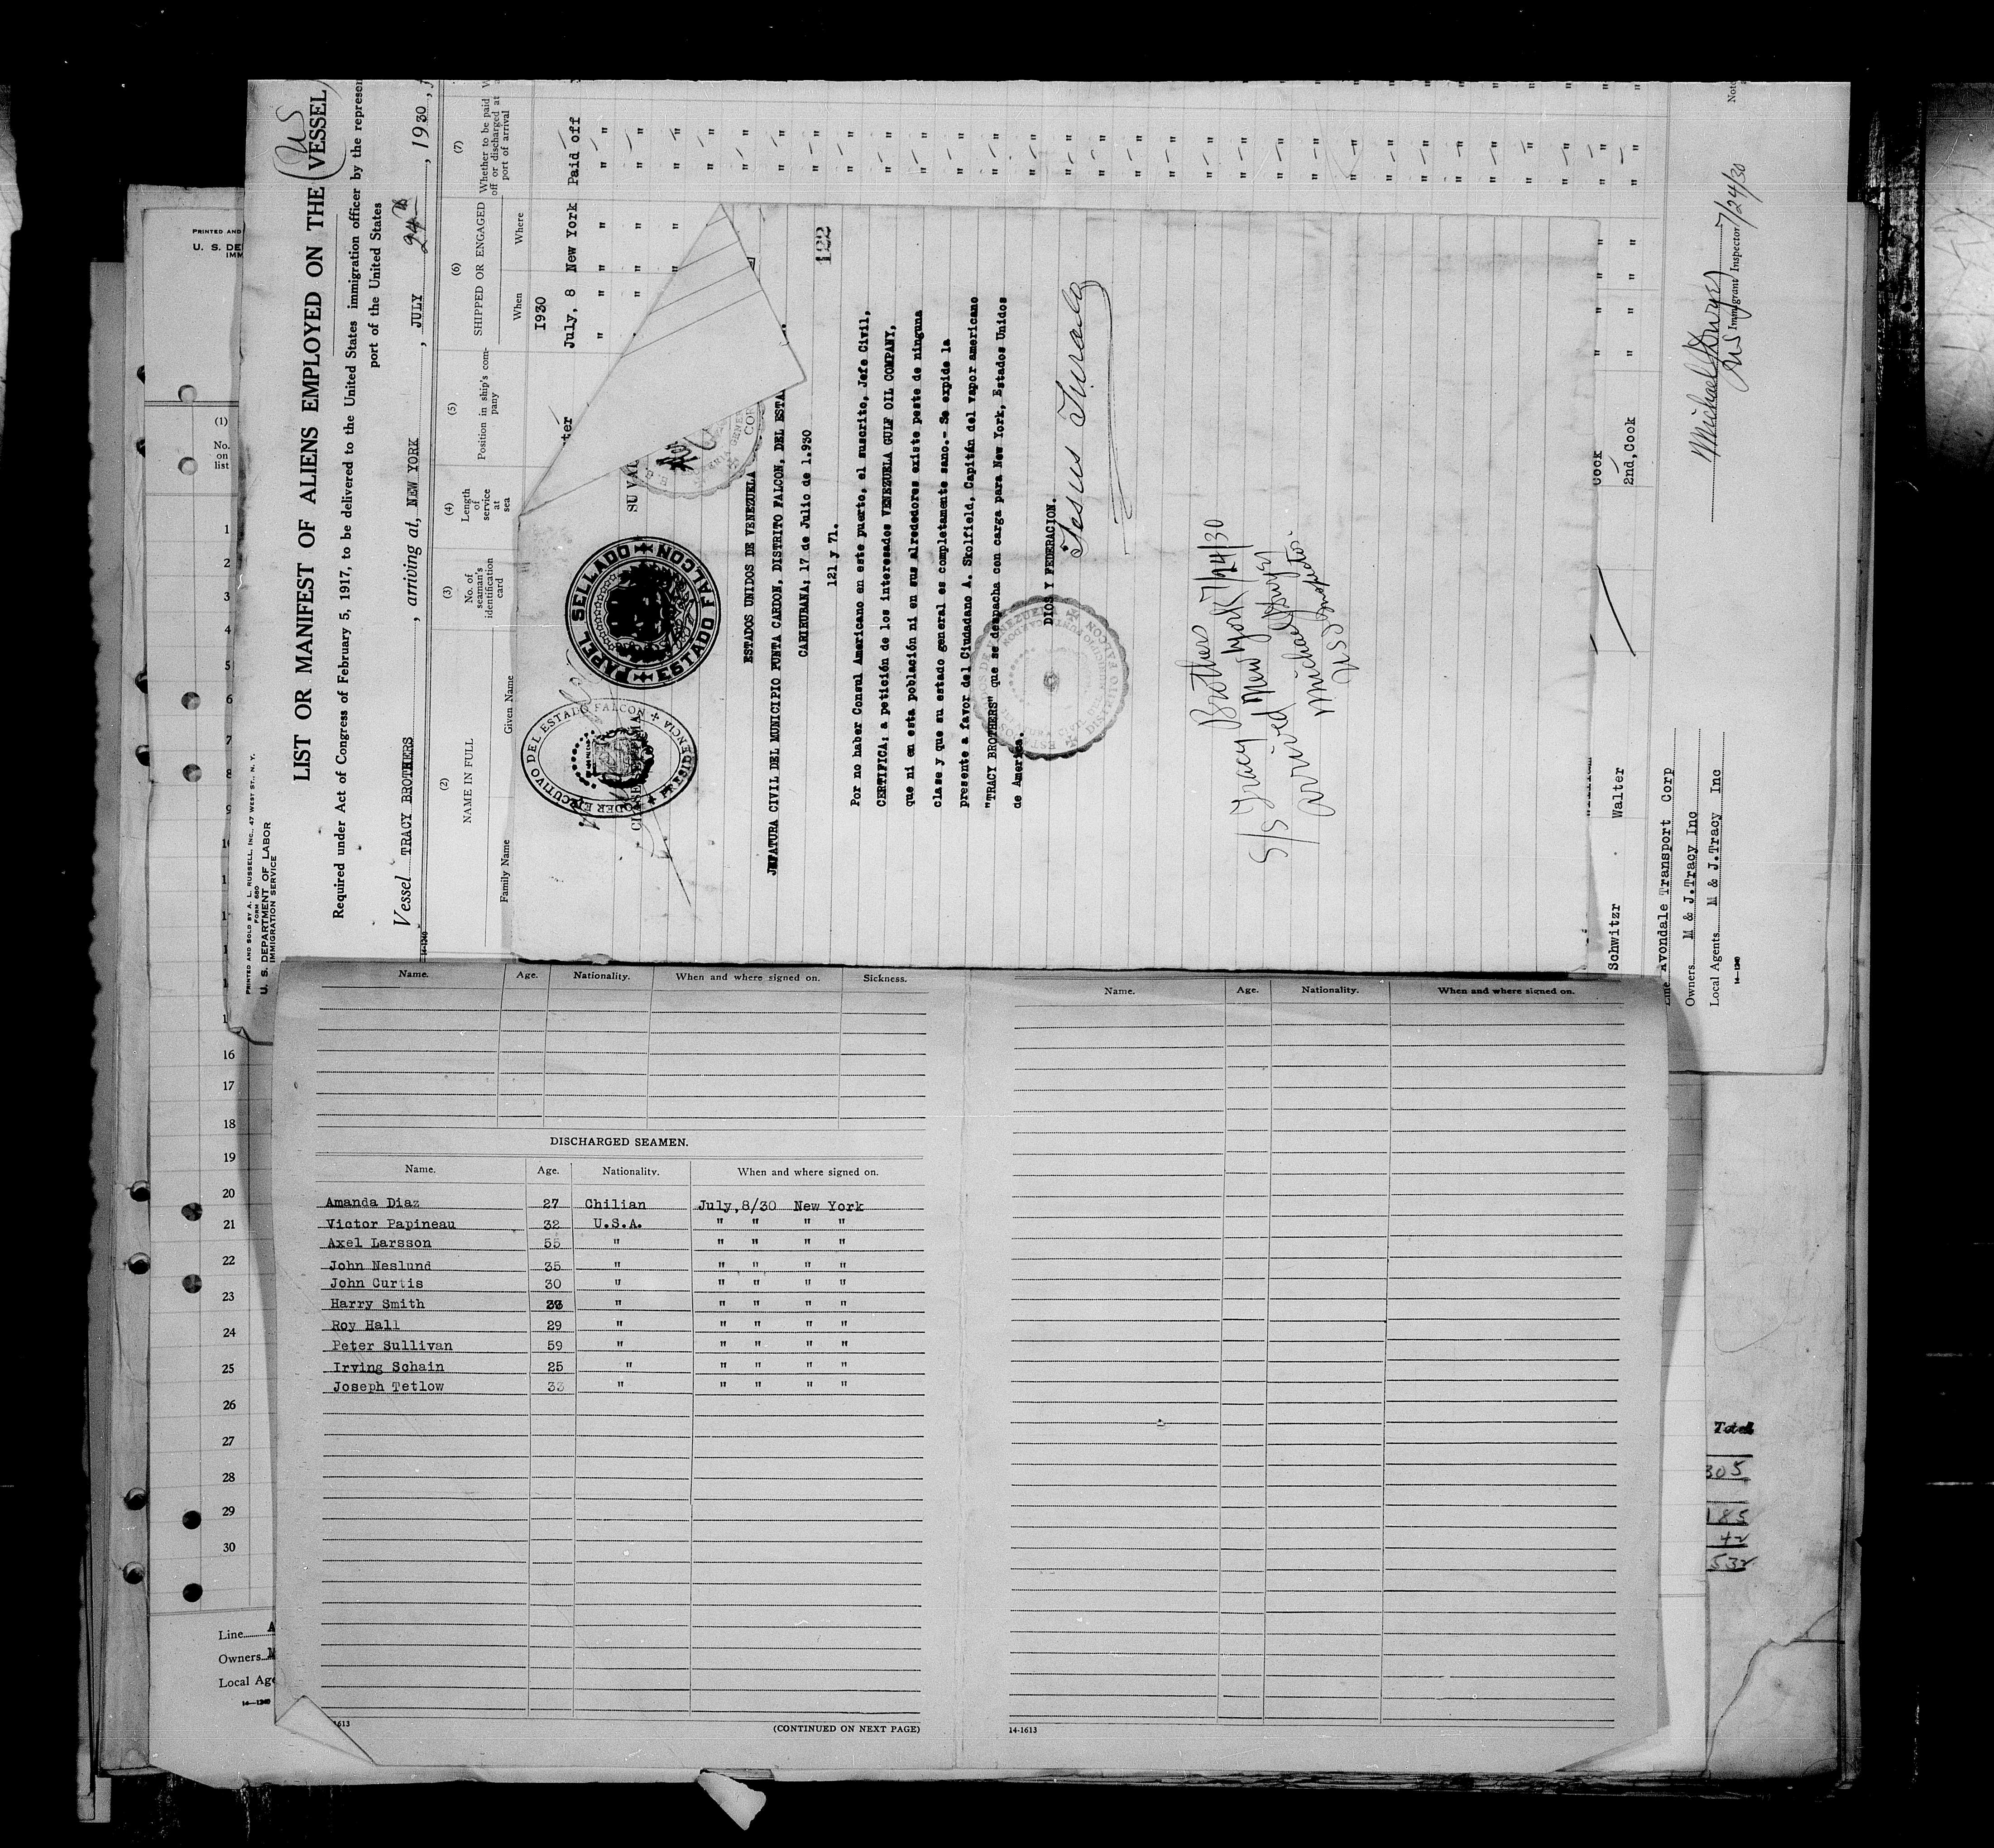 PRINTED AND SOLD BY A. L. RUSSELL, INC., 47 WEST ST., N. Y.
FORM 680
U. S. DEPARTMENT OF LABOR
IMMIGRATION SERVICE
US
LIST OR MANIFEST OF ALIENS EMPLOYED ON THE VESSEL
Required under Act of Congress of February 5, 1917, to be delivered to the United States immigration officer by the represen
port of the United States
Vessel TRACY BROTHERS, arriving at, NEW YORK, JULY 24th, 1930
14-1240
(2) (3) (4) (5) (6) (7)
NAME IN FULL
Family Name Given Name
No. of seaman's identification card
Length of service at sea
Position in ship's company
SHIPPED OR ENGAGED
When Where
Whether to be paid off or discharged at port of arrival
1930
ter July, 8 New York Paid off
" " " " " "
SU VAL
PAPEL SELLADO
ESTADO FALCON
PODER EJECUTIVO DEL ESTADO FALCON
PRESIDENCIA
ESTADOS UNIDOS DE VENEZUELA
122
JEFATURA CIVIL DEL MUNICIPIO PUNTA CARDON, DISTRITO FALCON, DEL ESTA
CARIRUBANA; 17 de Julio de 1.930
121 y 71.
Por no haber Consul Americano en este puerto, el suscrito, Jefe Civil,
CERTIFICA: a petición de los interesados VENEZUELA GULF OIL COMPANY,
que ni en esta población ni en sus alrededores existe peste de ninguna
clase y que su estado general es completamente sano.- Se expide la
presente a favor del Ciudadano A. Skolfield, Capitán del vapor americano
"TRACY BROTHERS" que se despacha con carga para New York, Estados Unidos
de America.
DIOS Y FEDERACION.
S/S Tracy Brothers
Arrived New York 7/24/30
US Inspector
Cook
2nd, Cook
Schwitzr Walter
Line Avondale Transport Corp
Owners M & J.Tracy Inc
Local Agents M & J.Tracy Inc
14-1240
7/24/30
US Immigrant Inspector
Note
PRINTED AND
U. S. DE
IMM
(1)
No. on list
1
2
3
4
5
6
7
8
9
16
17
18
19
20
21
22
23
24
25
26
27
28
29
30
Line A
Owners M
Local Age
14-1240
Name. Age. Nationality. When and where signed on. Sickness.
DISCHARGED SEAMEN.
Name. Age. Nationality. When and where signed on.
Amanda Diaz 27 Chilian July,8/30 New York
Victor Papineau 32 U.S.A. " " " "
Axel Larsson 55 " " " " "
John Neslund 35 " " " " "
John Curtis 30 " " " " "
Harry Smith " " " " "
Roy Hall 29 " " " " "
Peter Sullivan 59 " " " " "
Irving Schain 25 " " " " "
Joseph Tetlow 33 " " " " "
1613
(CONTINUED ON NEXT PAGE)
Name. Age. Nationality. When and where signed on.
14-1613
Total
305
185
42
532